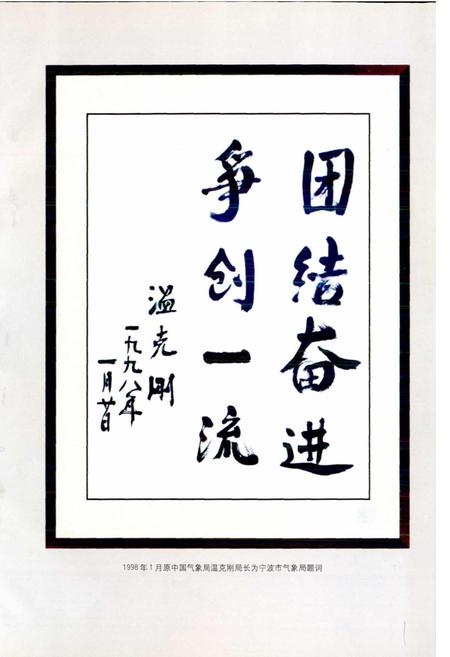 团结奋进
争创一流
温克刚
一九九八年
一月廿日
1998年1月原中国气象局温克刚局长为宁波市气象局题词